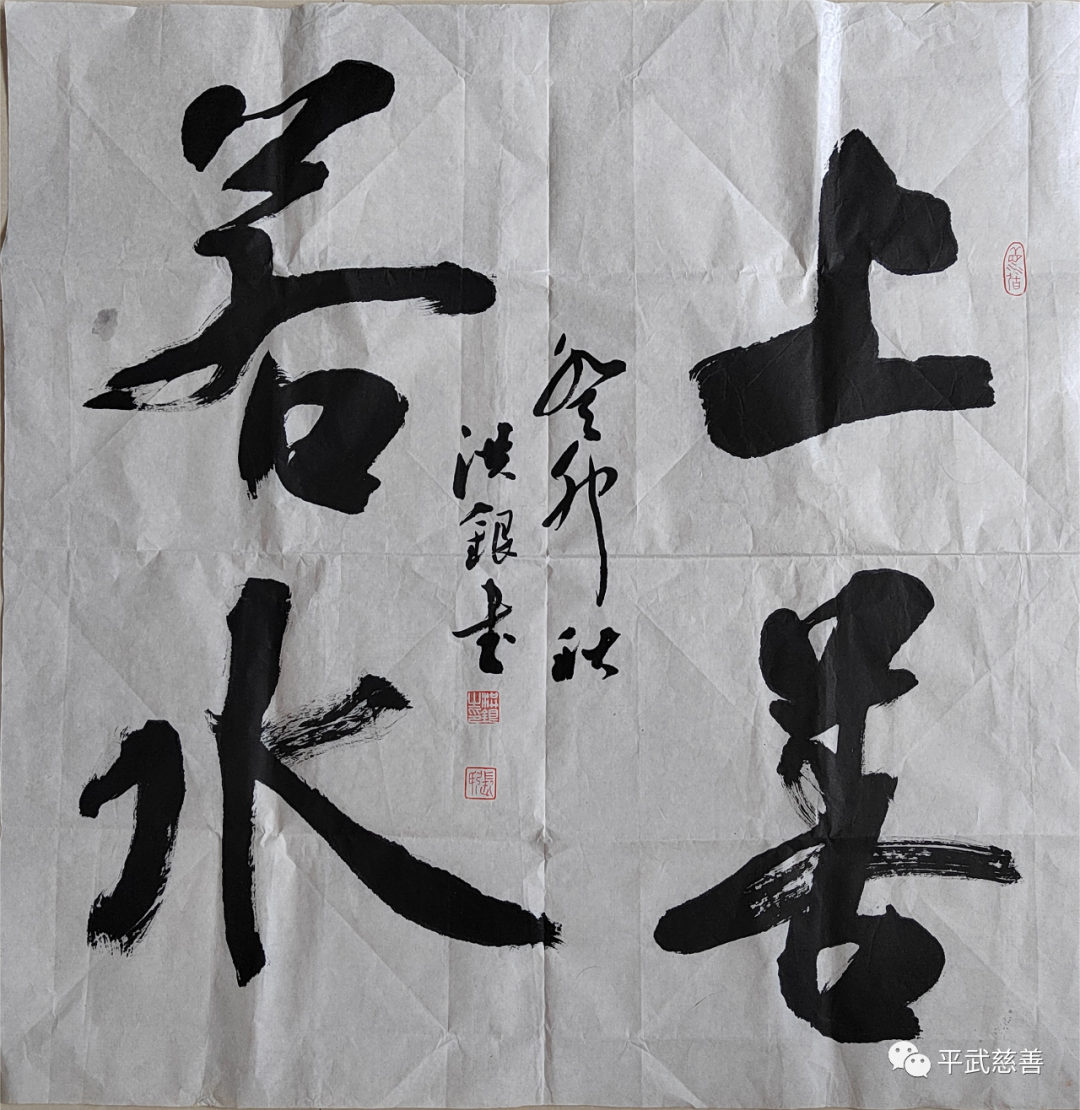 上善
若水
癸卯秋
洪银書
平武慈善